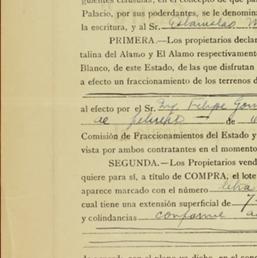 guientes cláusulas, en el concepto de que pa
Palacio, por sus poderdantes, se le denomina
la escritura, y al Sr. Estanislao
PRIMERA.—Los propietarios declar
talina del Alamo y El Alamo respectivament
Blanco, de este Estado, de las que disfrutan
a efecto un fraccionamiento de los terrenos d
al efecto por el Sr. Ing. Felipe
de febrero de
Comisión de Fraccionamientos del Estado y
vista por ambos contratantes en el momento
SEGUNDA.—Los Propietarios vend
quiere para sí, a título de COMPRA, el lote
aparece marcado con el número letra
cual tiene una extensión superficial de
y colindancias conforme